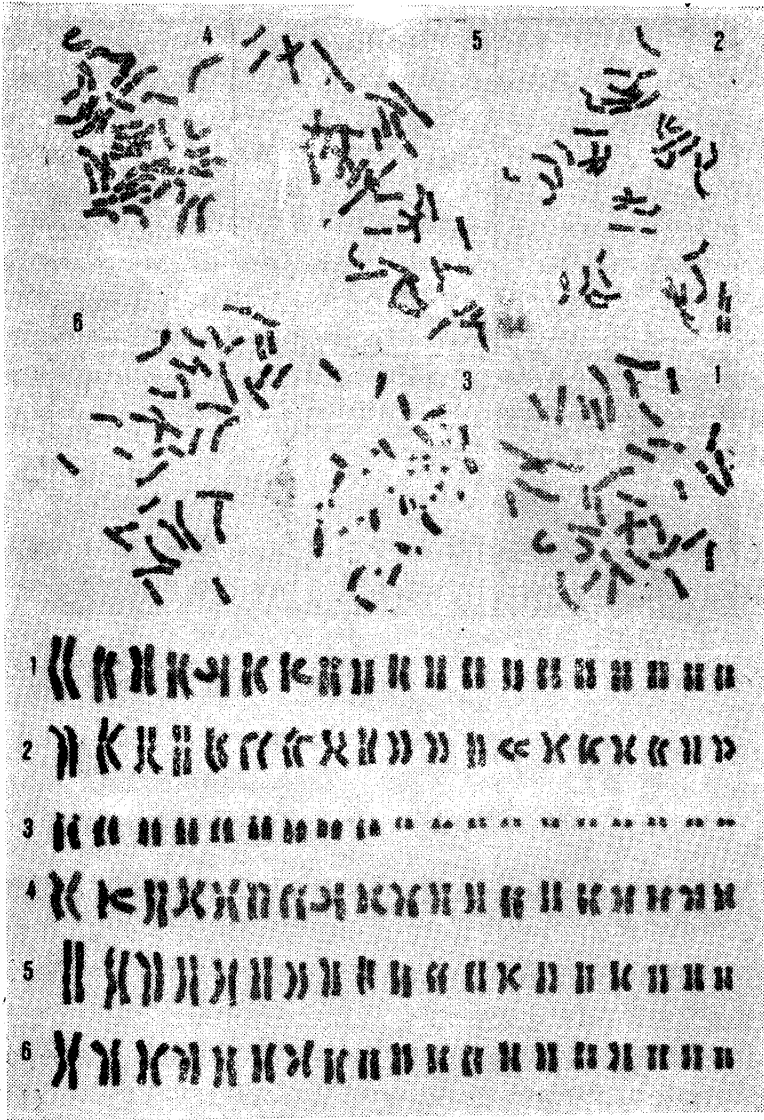 4 5 2
6 3 1
1
2
3
4
5
6